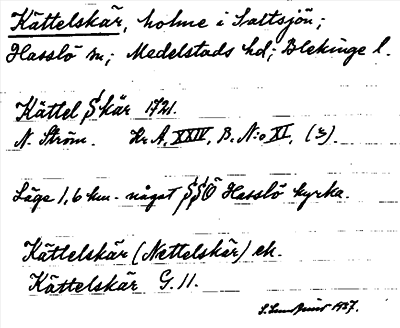 Kättelskär, holme i Saltsjön;
Hasslö sn; Medelstads hd; Blekinge l.
Kättel Skär 1721.
N. Ström. Kr. A. XXIV, B. N:o XI, (3).
Läge 1,6 km. något SSÖ Hasslö kyrka.
Kättelskär (Nettelskär) ek.
Kättelskär G. 11.
1937.